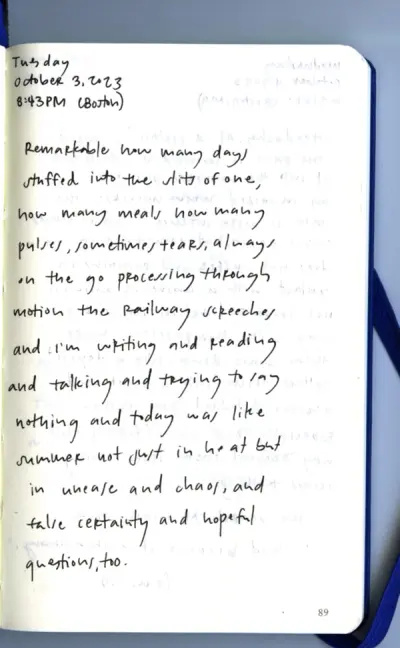 Tuesday
October 3, 2023
8:43PM (Boston)
Remarkable how many days
stuffed into the slits of one,
how many meals how many
pulses, sometimes tears, always
on the go processing through
motion the Railway screeches
and I'm writing and reading
and talking and trying to say
nothing and today was like
summer not just in heat but
in unease and chaos, and
false certainty and hopeful
questions, too.
89